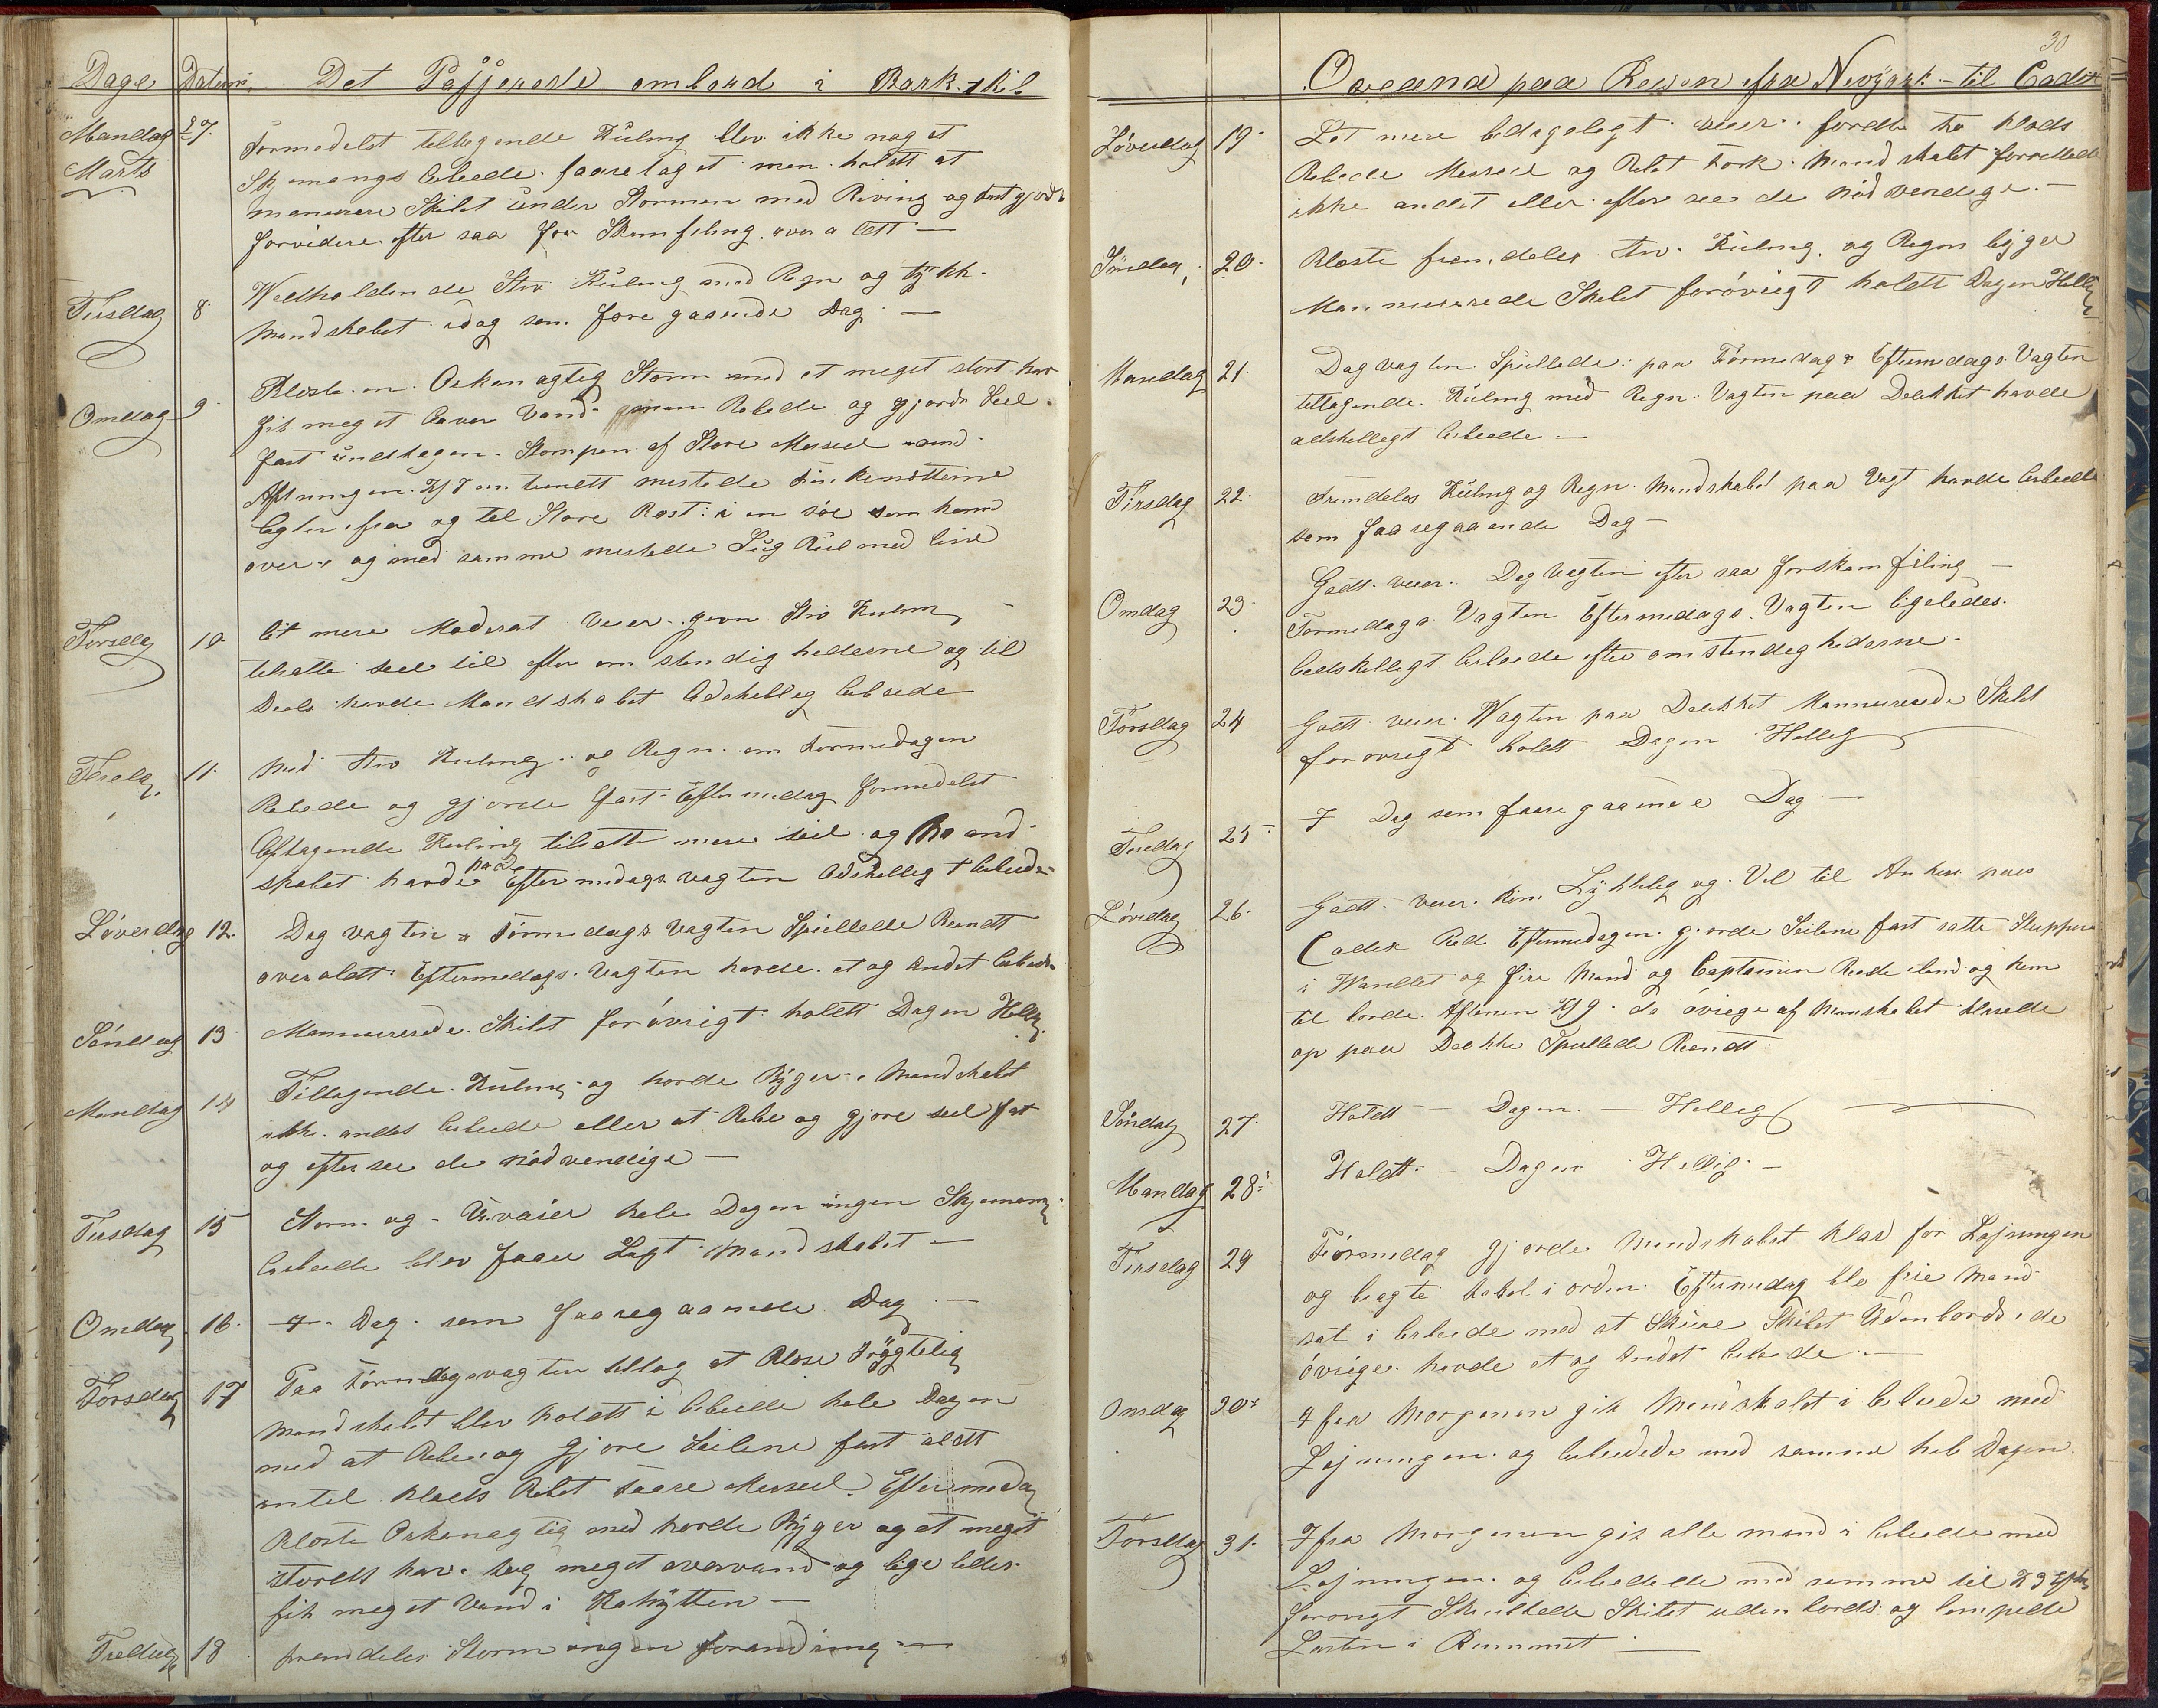 Dage Datum Det Passerede ombord i Bark-skib
Mandag 27. Formedelst tiltagende Kuling blev ikke noget
Marts Skjemangs Arbeide faaretaget men holdt at
manurere Skibet under Stormen med Reving og fast gjorde
forvidere efter saa for Skamfiling over alt —
Tirsdag 8 Wedholdende Stiv Kuling med Regn og tykk.
Mandskabet idag som foregaaende Dag —
Onsdag 9 Bleste en Orkanagtig Storm med et meget stort hav
fik meget over Vand Rebede og gjorde Seil
fast undtagen Stompen af Store Merseil
Aftningen Kl 7 mistede
fra og til Store Røst i en söe som kom
over og med samme mistede med line
Torsdag 10 Lit mere Moderat Veier Stiv Kuling
tilsatte seil til efter omstendighederne og til
Deels havde Mandskabet Adskellig Arbeide
11. Med Stiv Kuling og Regn om Formedagen
Rebede og gjorde fast Eftermedag formedelst
Aftagende Kuling tilsatte mere seil og Mand-
skabet havde paa Eftermedags vagten Adskelligt Arbeide
Löverdag 12. Dag vagten & Formedags vagten Spillede Rundt
overaldt Eftermedags Vagten havde et og andet Arbeide
Söndag 13 Mannurerede Skibet forövrigt holdt Dagen Hellig
Mandag 14 Tiltagende Kuling og haarde Byger Mandskabet
ikke andet Arbeide eller at Rebe og gjore seil fast
og efter see de nödvendige —
Tirsdag 15 Storm og Uvaier hele Dagen ingen Skjemans
Arbeide blev faare Lagt Mandskabet —
Onsdag 16. I Dag som faaregaaende Dag —
Torsdag 17 Paa Formedagsvagten tiltog at Blese frögtelig
Mandskabet blev holdt i Arbeide hele Dagen
med at Rebe og Gjore Seilene fast aldt
intel Klods Rebet Store Merseil. Eftermedag
Bleste Orkanagtig med haarde Byger og et meget
stordt hav. tog meget overvand og lige ledes
fik meget Vand i Kahytten —
Fredag 18 fremdeles Storm ingen forandring —
30
Oceana paa Reisen fra Newyork til Cadix
Löverdag 19. Lit mere bedageligt veier forde to Klods
Rebede Merseil og Rebet Fock. Mandskabet forrettede
ikke andet eller efter see de nödvendige. —
Söndag 20. Bleste fremdeles Stiv Kuling og Regn bygger
Mannurerede Skibet foröwrigt holdt Dagen Hellig
Mandag 21. Dag vagten Spillede paa Formedags & Eftermedags Vagten
tiltagende Kuling med Regn. Vagten paa Dækket havde
adskelligt Arbeide —
Tirsdag 22. Fremdeles Kuling og Regn. Mandskabet paa Vagt havde Arbeide
som faaregaaende Dag —
Onsdag 23. Godt veier. Dag Vagten efter saa forskamfiling —
Formedags Vagten Eftermedags Vagten ligeledes
Aedskelligt Arbeide efter omstendeghederne —
Torsdag 24 Godt veier. Wagten paa Dækket Mannurerede Skibet
forovregt holdt Dagen Helleg
25 I Dag som faaregaaende Dag —
Löredag 26. Godt veier. Kom Lykkelig og Vel til Ankers paa
Cadix Red Eftermedagen gjorde Seilene fast satte Sluppen
i Wandet og fire Mand og Captainen Roede iland og kom
til borde Aftenen Kl 9. de övrege af Manskabet klarede
op paa Dækket Spillede Rundt
Söndag 27. Holdt — Dagen. — Helleg
Mandag 28. Holdt — Dagen Hellig. —
Tirsdag 29 Formedag gjorde Mandskabet klar for Losningen
og bragte i orden. Eftermedag blev fire Mand
sat i Arbeide med at Skure Skibet Udenbords de
övrige havde et og Andet Arbeide. —
Onsdag 30 I fra Morgenen gik Mandskabet i Arbeide med
Losningen og Arbeidede med samme hele Dagen.
Torsdag 31. I fra Morgenen gik alle mand i Arbeide med
Losningen og Arbeidede med samme til
forövrigt Skultede Skibet uden bords og lempede
Lasten i Rummet —